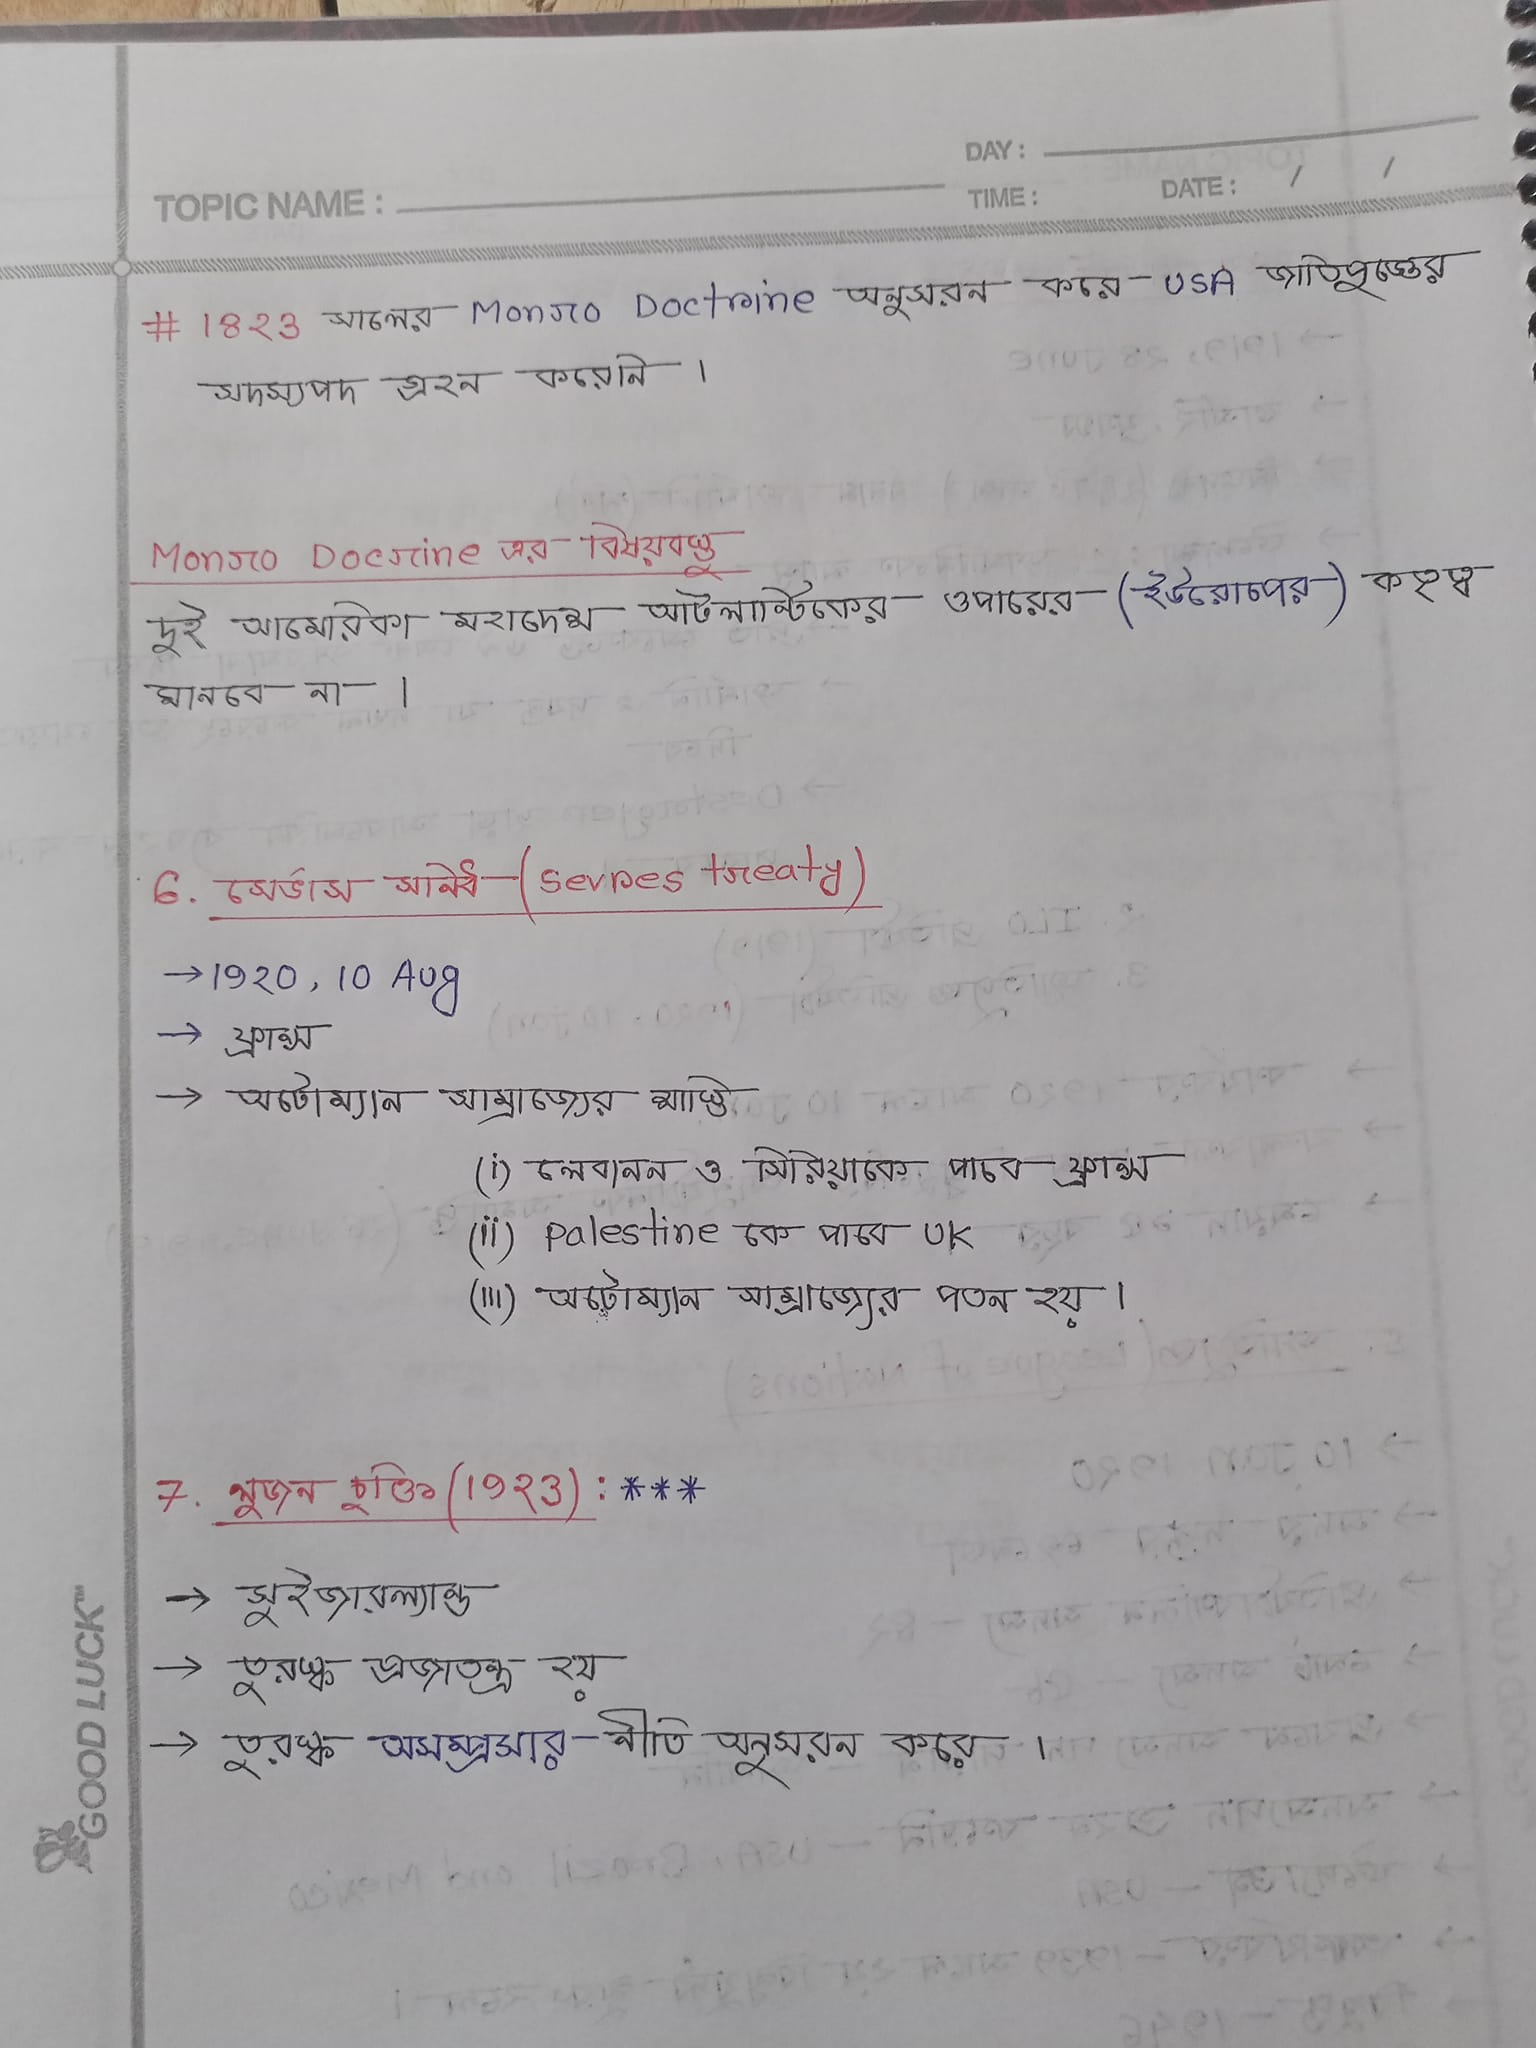 DAY:
TOPIC NAME: TIME: DATE: / /
# 1823 সালের Monro Doctrine অনুসরন করে USA জাতিপুঞ্জের
সদস্যপদ গ্রহন করেনি।
Monro Doctrine এর বিষয়বস্তু
দুই আমেরিকা মহাদেশ আটলান্টিকের ওপারের (ইউরোপের) কতৃত্ব
মানবে না।
6. সের্ভাস সন্ধি (Sevres treaty)
→ 1920, 10 Aug
→ ফ্রান্স
→ অটোম্যান সাম্রাজ্যের শাস্তি
(i) লেবানন ও সিরিয়াকে পাবে ফ্রান্স
(ii) Palestine কে পাবে UK
(iii) অটোম্যান সাম্রাজ্যের পতন হয়।
7. লুজান চুক্তি (1923): ***
→ সুইজারল্যান্ড
→ তুরস্ক প্রজাতন্ত্র হয়
→ তুরস্ক অসম্প্রসার নীতি অনুসরন করে।
GOOD LUCK™